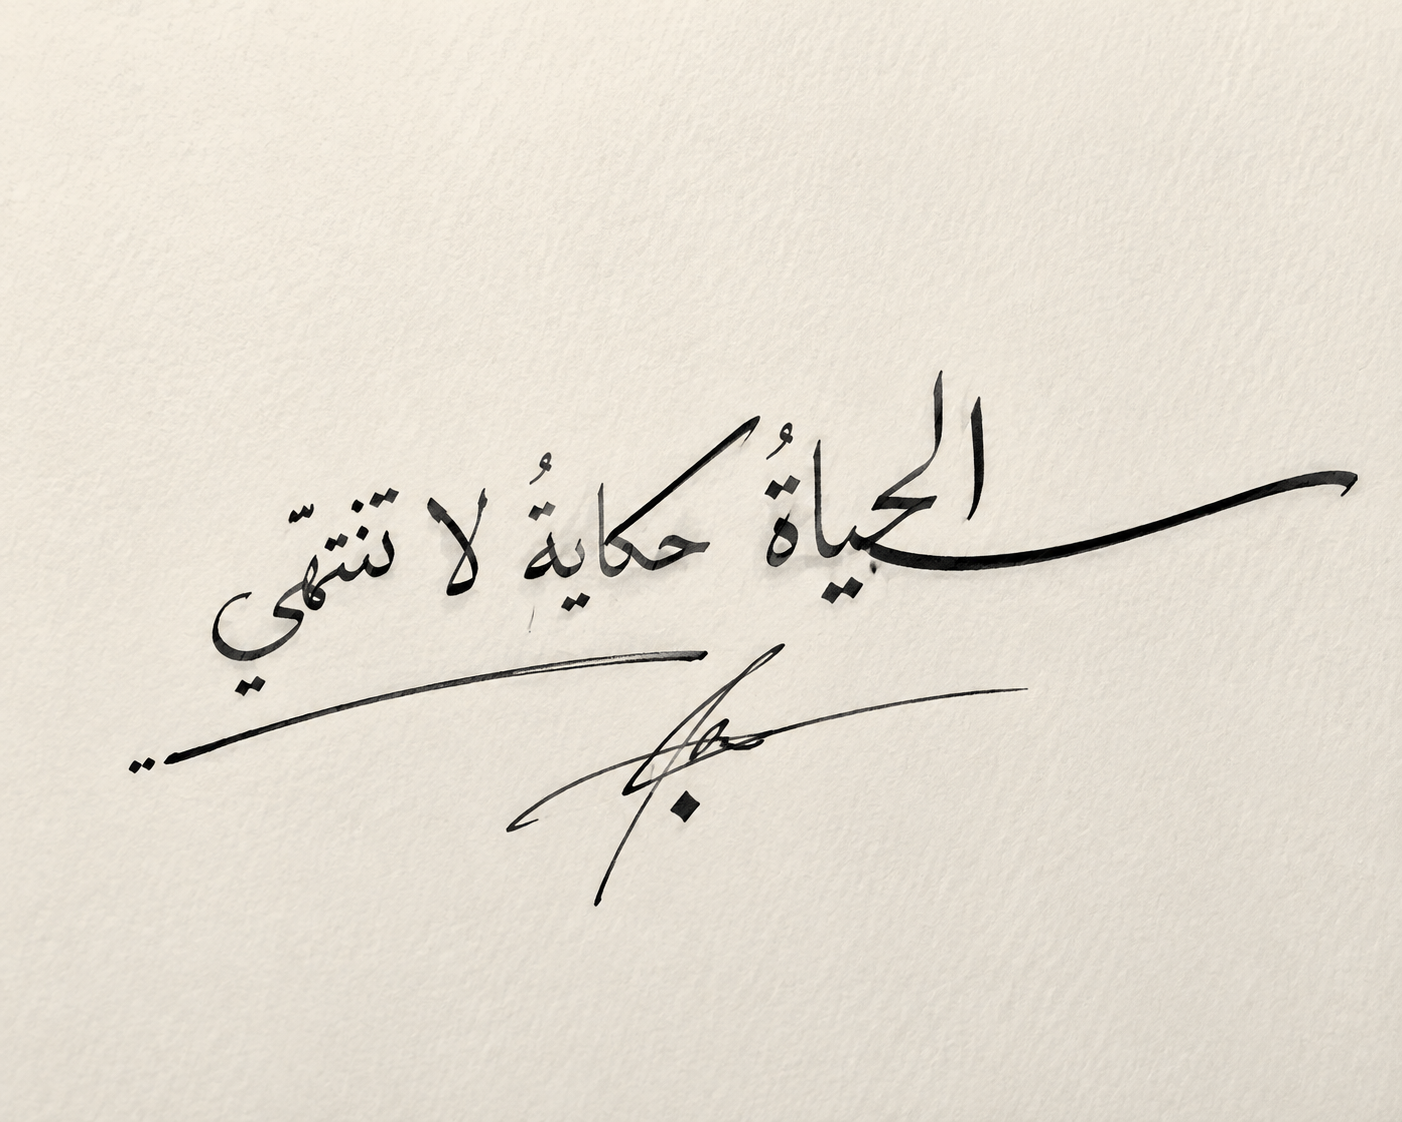 الحياةُ حكايةُ لا تنتهّي